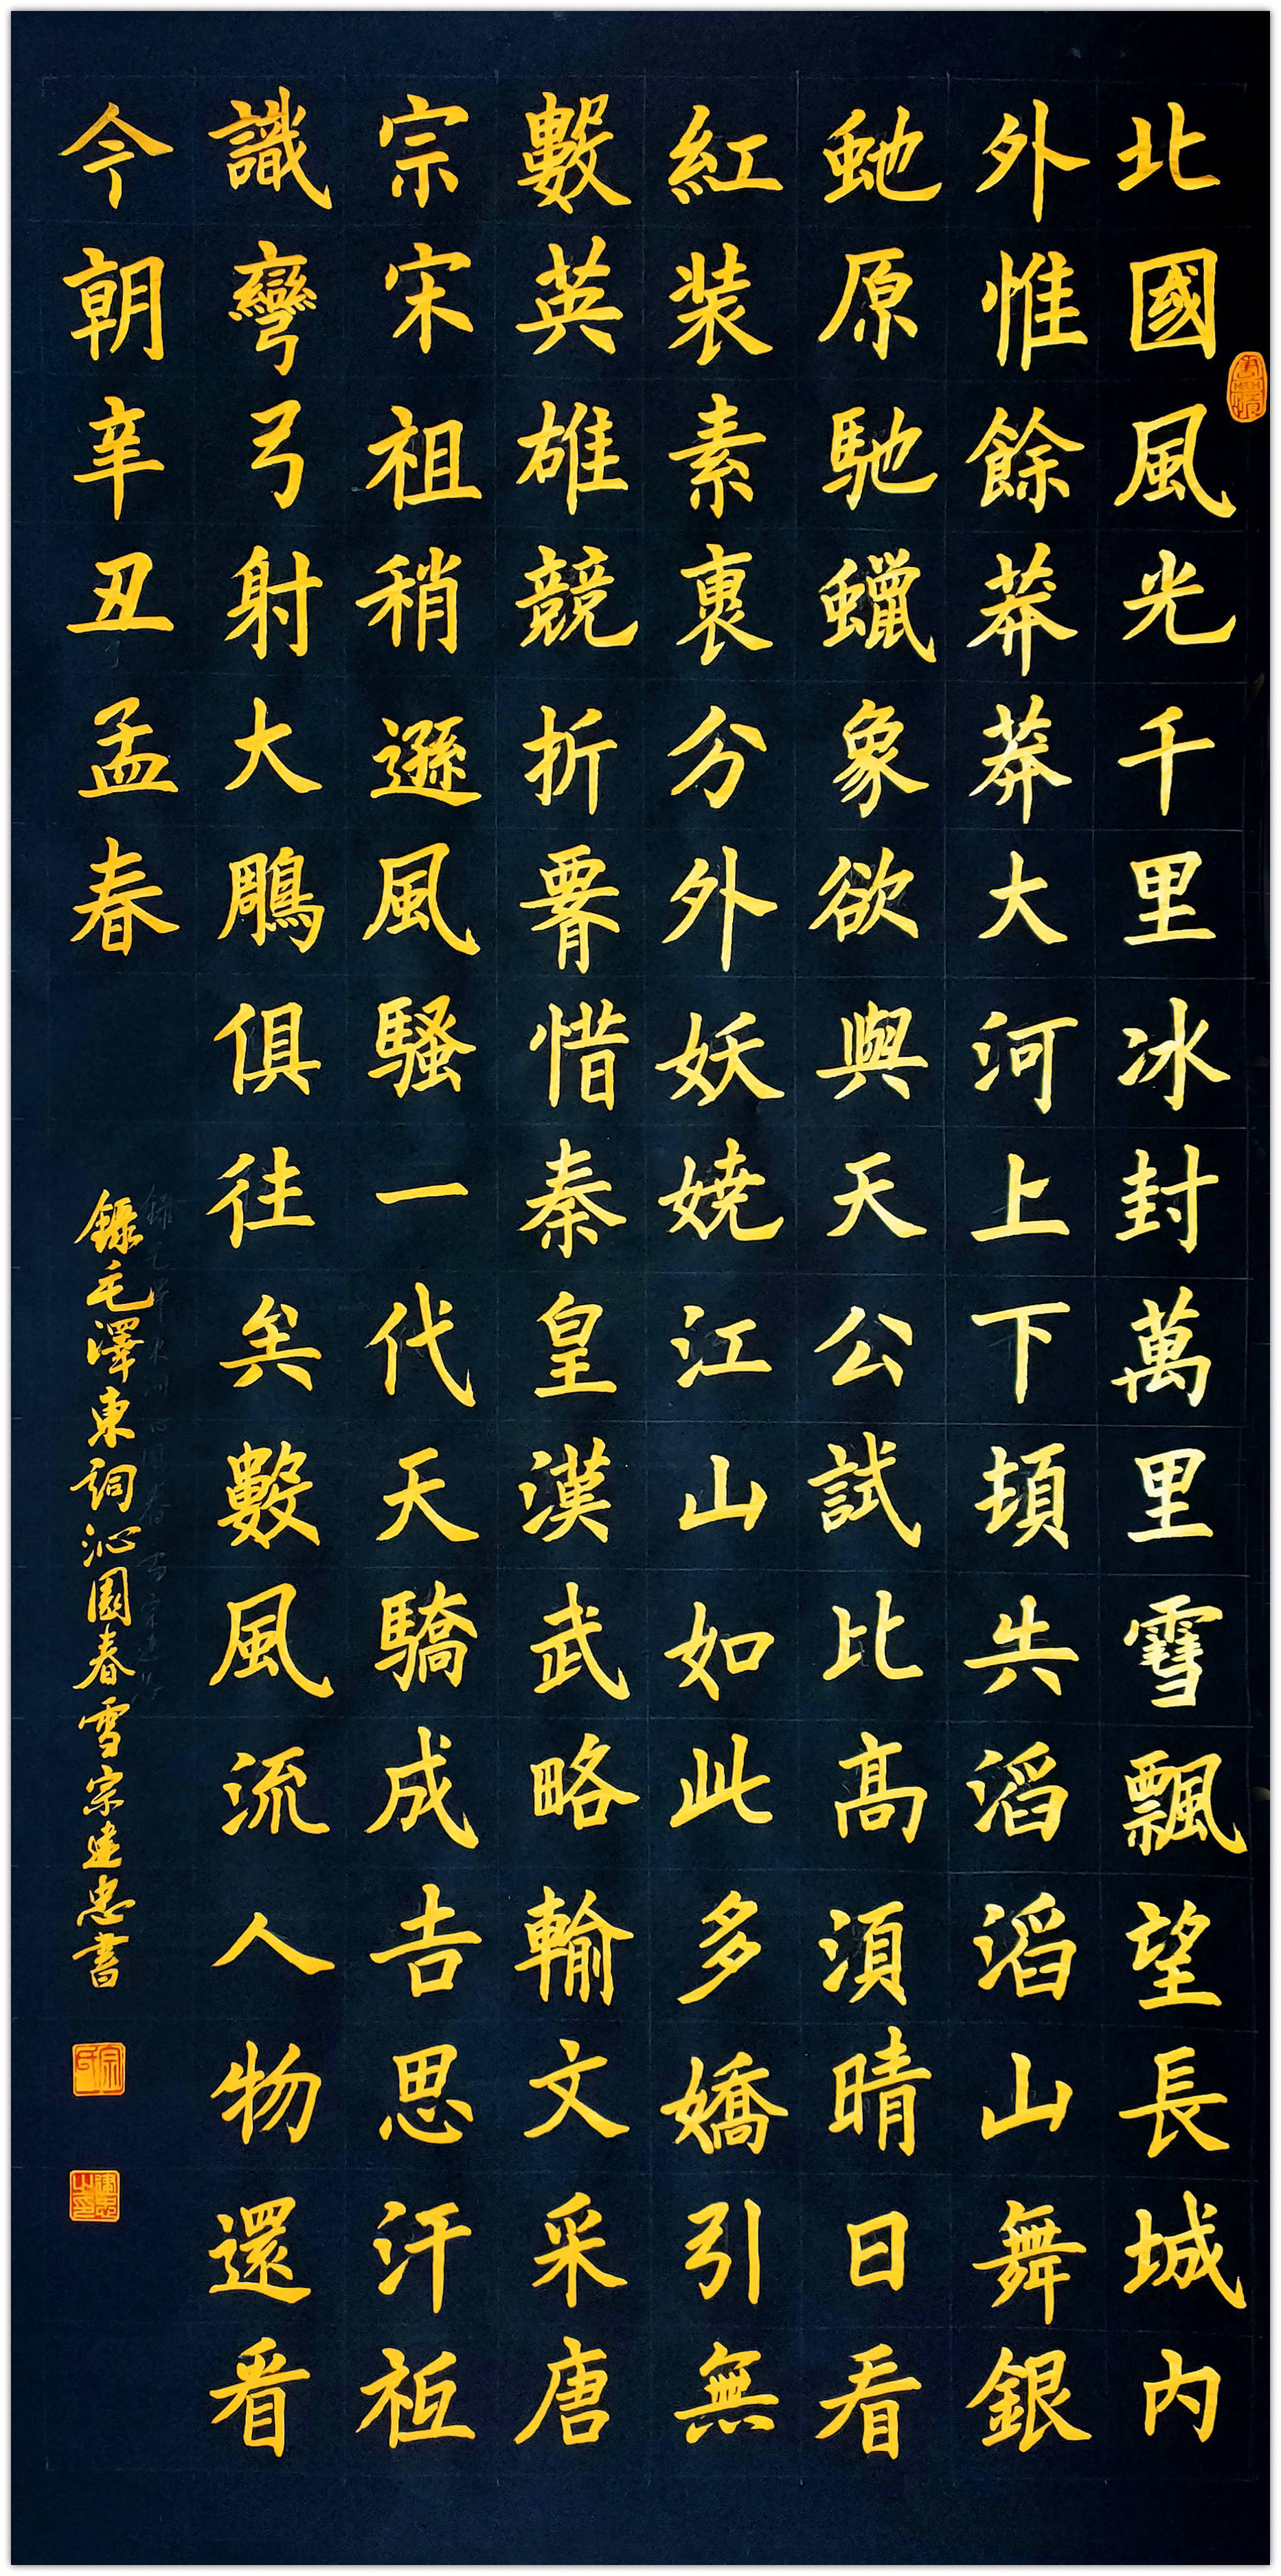 北國風光千里冰封萬里雪飄望長城内
外惟餘莽莽大河上下頓失滔滔山舞銀
虵原馳蠟象欲與天公試比髙湏晴日看
紅装素裹分外妖娆江山如此多嬌引無
數英雄競折腰惜秦皇漢武略輸文采唐
宗宋祖稍遜風騷一代天驕成吉思汗祗
識彎弓射大鵰俱往矣數風流人物還看
今朝辛丑孟春
錄毛澤東詞沁園春雪宗建忠書